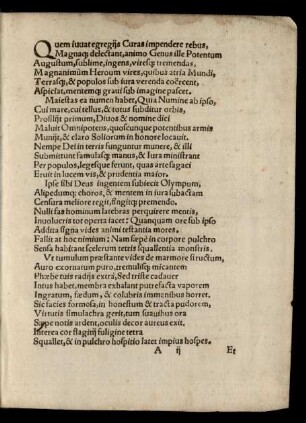 Quem iuuat egregijs Curas impendere rebus,
Magnaq; delectant, animo Genus ille Potentum
Augustum, sublime, ingens, viresq; tremendas,
Magnanimûm Heroum vires, quibus atria Mundi,
Terrasq;, & populos sub iura verenda coërcent,
Aspiciat, mentemq; graui sub imagine pascet.
Maiestas ea numen habet, Qui a Numine ab ipso,
Cui mare, cui tellus, & totus subditur orbis,
Prosilijt primum, Diuos & nomine dici
Maluit Omnipotens, quoscunque potentibus armis
Munijt, & claro Soliorum in honore locauit.
Nempe Dei in terris funguntur munere, & illi
Submittunt famulasq; manus, & Iura ministrant
Per populos, legesque ferunt, quas arte sagaci
Eruit in lucem vis, & prudentia maior.
Ipse sibi Deus ingentem subiecit Olympum,
Alipedumq; choros, & mentem in iura subactam
Censura meliore regit, stringitq; premendo.
Nulli fas hominum latebras perquirere mentis,
Inuolucris tot operta iacet: Quanquam ore sub ipso
Addita signa vides animi testantia mores.
Fallit at hoc nimium: Nam sæpè in corpore pulchro
Sensa habitant scelerum tetris squallentia monstris.
Vt tumulum præstante vides de marmore structum,
Auro exornatum puro, tremulisq; micantem
Phœbe tuis radijs extrà, Sed triste cadauer
Intus habet, membra exhalant putrefacta vaporem
Ingratum, fœdum, & colubris immanibus horret.
Sic facies formosa, in honestum & tracta pudorem,
Virtutis simulachra gerit, tum suauibus ora
Sæpe notis ardent, oculis decor aureus exit,
Interea cor stagnis fuligine tetra
Squallet, & in pulchro hospitio latet impius hospes.
A ij Et